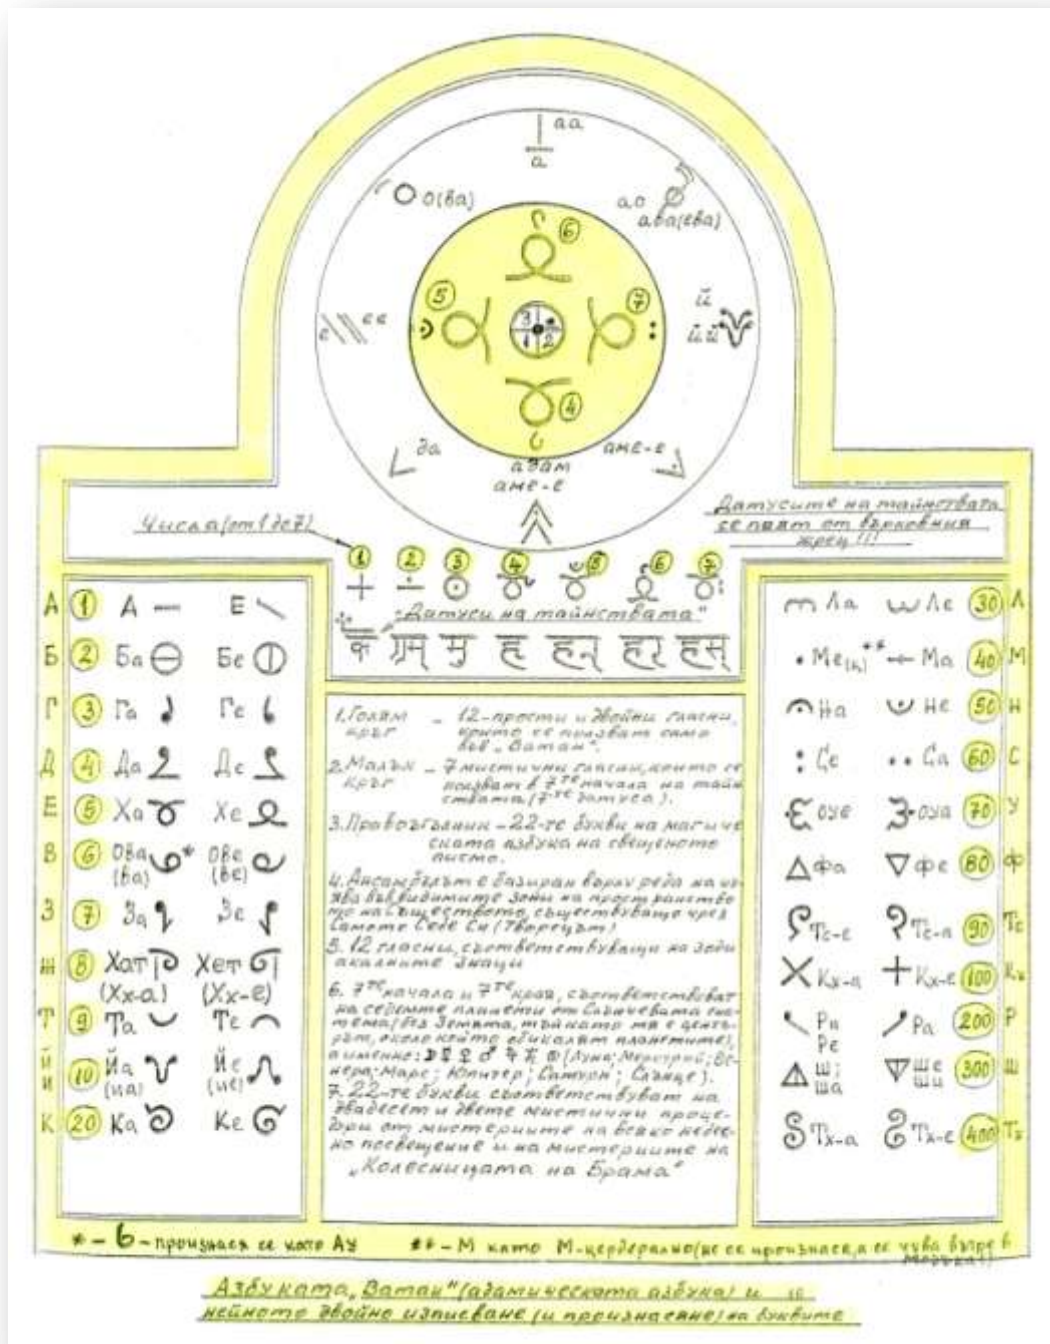 аа
а
о(ва)
ао
ава(ева)
6
5
7
е
ее
й
йй
3
1 2
4
да
адам
аме-е
аме-е
Числа (от 1 до 7)
Датусите на тайнствата
се пеят от върховния
жрец!!!
1 2 3 4 5 6 7
„Датуси на тайнствата"
А 1 А Е
Б 2 Ба Бе
Г 3 Га Ге
Д 4 Да Де
Е 5 Ха Хе
В 6 Ова * Ове
(ва) (ве)
З 7 За Зе
Ж 8 Хат Хет
(Хх-а) (Хх-е)
Т 9 Та Те
Й И 10 Йа Йе
(иа) (ие)
К 20 Ка Ке
1. Голям кръг – 12-прости и двойни гласни,
които се ползват само
във „Ватан".
2. Малък кръг – 7 мистични гласни, които се
ползват в 7те начала на тайн
ствата (7-те датуса).
3. Правоъгълник – 22-те букви на магиче
ската азбука на свещеното
писмо.
4. Ансамбълът е базиран върху реда на
във видимите зони на пространство
то на Съществото, съществуващо чрез
Самото Себе Си (Твореца)
5. 12 гласни, съответствуващи на зоди
акалните знаци
6. 7те начала и 7те края, съответствуват
на седемте планети от Слънчевата сис
тема (без Земята, тъй като тя е център
ът, около който обикалят планетите),
а именно: (Луна; Меркурий; Ве-
нера; Марс; Юпитер; Сатурн; Слънце).
7. 22-те букви съответствуват на
двадесет и двете мистични проце-
дури от мистериите на всяко
но посвещение и на мистериите на
„Колесницата на Брама"
Ла Ле 30 Л
Ме ** Ма 40 М
На Не 50 Н
Се Са 60 С
оуе оуа 70 У
Фа Фе 80 Ф
Тс-е Тс-а 90 Тс
Кх-а Кх-е 100 Кх
Ри Ре Ра 200 Р
Ш; ша ше ши 300 Ш
Тх-а Тх-е 400 Тх
* – произнася се като АУ
** – М като М-церебрално (не се произнася, а се чува вътре в
Азбуката „Ватан" (адамическата азбука) и
нейното двойно изписване (и произнасяне) на буквите